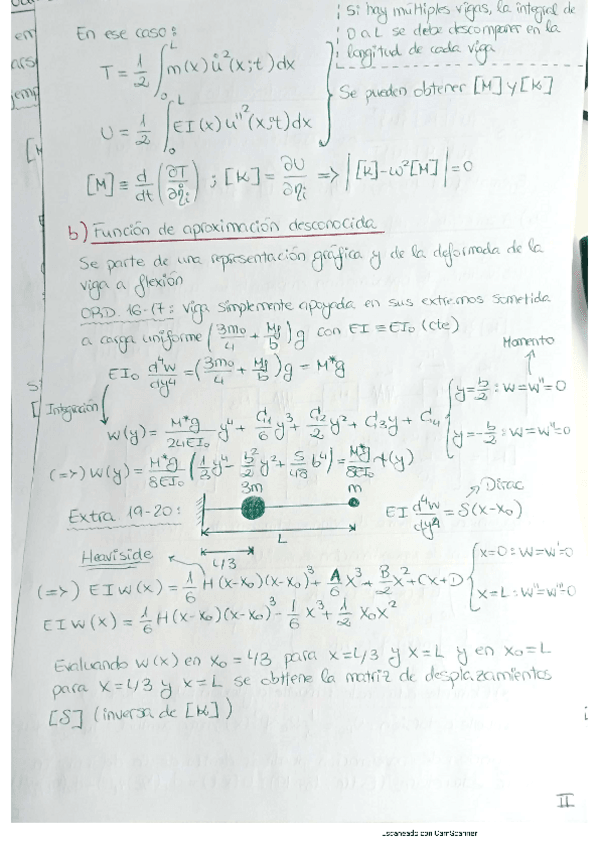 Si hay múltiples vigas, la integral de
0 a L se debe descomponer en la
longitud de cada viga
En ese caso:
T = 1/2 ∫₀ᴸ m(x) u̇²(x;t) dx
U = 1/2 ∫₀ᴸ EI(x) u''²(x;t) dx
Se pueden obtener [M] y [K]
[M] ≡ d/dt (∂T/∂η̇i) ; [K] = ∂U/∂ηi => |[K]-ω²[M]| = 0
b) Función de aproximación desconocida
Se parte de una representación gráfica y de la deformada de la
viga a flexión
ORD. 16-17: Viga simplemente apoyada en sus extremos sometida
a carga uniforme (3m₀/4 + Mf/b) g con EI ≡ EI₀ (cte)
Momento
EI₀ d⁴w/dy⁴ = (3m₀/4 + Mf/b) g = M*g
y = b/2 : w = w'' = 0
y = -b/2 : w = w'' = 0
Integración
w(y) = M*g/24EI₀ y⁴ + C₁/6 y³ + C₂/2 y² + C₃y + C₄
(=>) w(y) = M*g/8EI₀ (1/3 y⁴ - b²/2 y² + 5/48 b⁴) = M*g/8EI₀ f(y)
3m m
Dirac
Extra 19-20:
EI d⁴w/dy⁴ = δ(x-x₀)
L
Heaviside
L/3
x=0: w=w'=0
x=L: w''=w'''=0
(=>) EIw(x) = 1/6 H(x-x₀)(x-x₀)³ + A/6 x³ + B/2 x² + Cx + D
EIw(x) = 1/6 H(x-x₀)(x-x₀)³ - 1/6 x³ + 1/2 x₀x²
Evaluando w(x) en x₀ = L/3 para x = L/3 y x = L y en x₀ = L
para x = L/3 y x = L se obtiene la matriz de desplazamientos
[S] (inversa de [K])
II
Escaneado con CamScanner